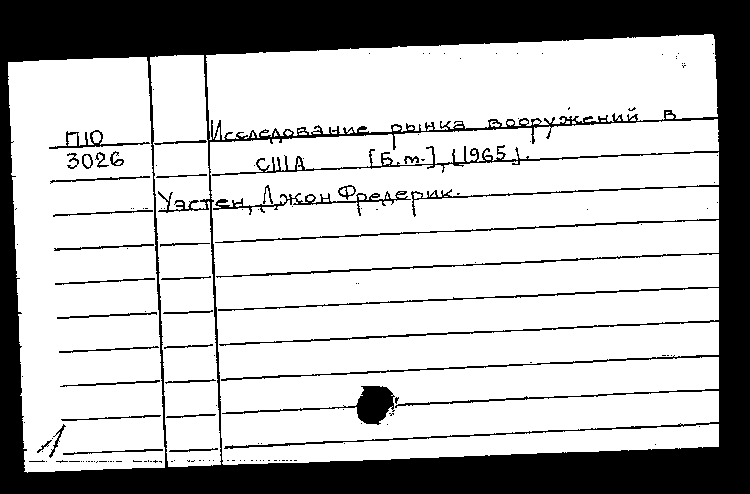 Исследование рынка вооружений в
П10
3026
США [Б.т.], [1965].
Уэстен, Джон Фредерик.
1